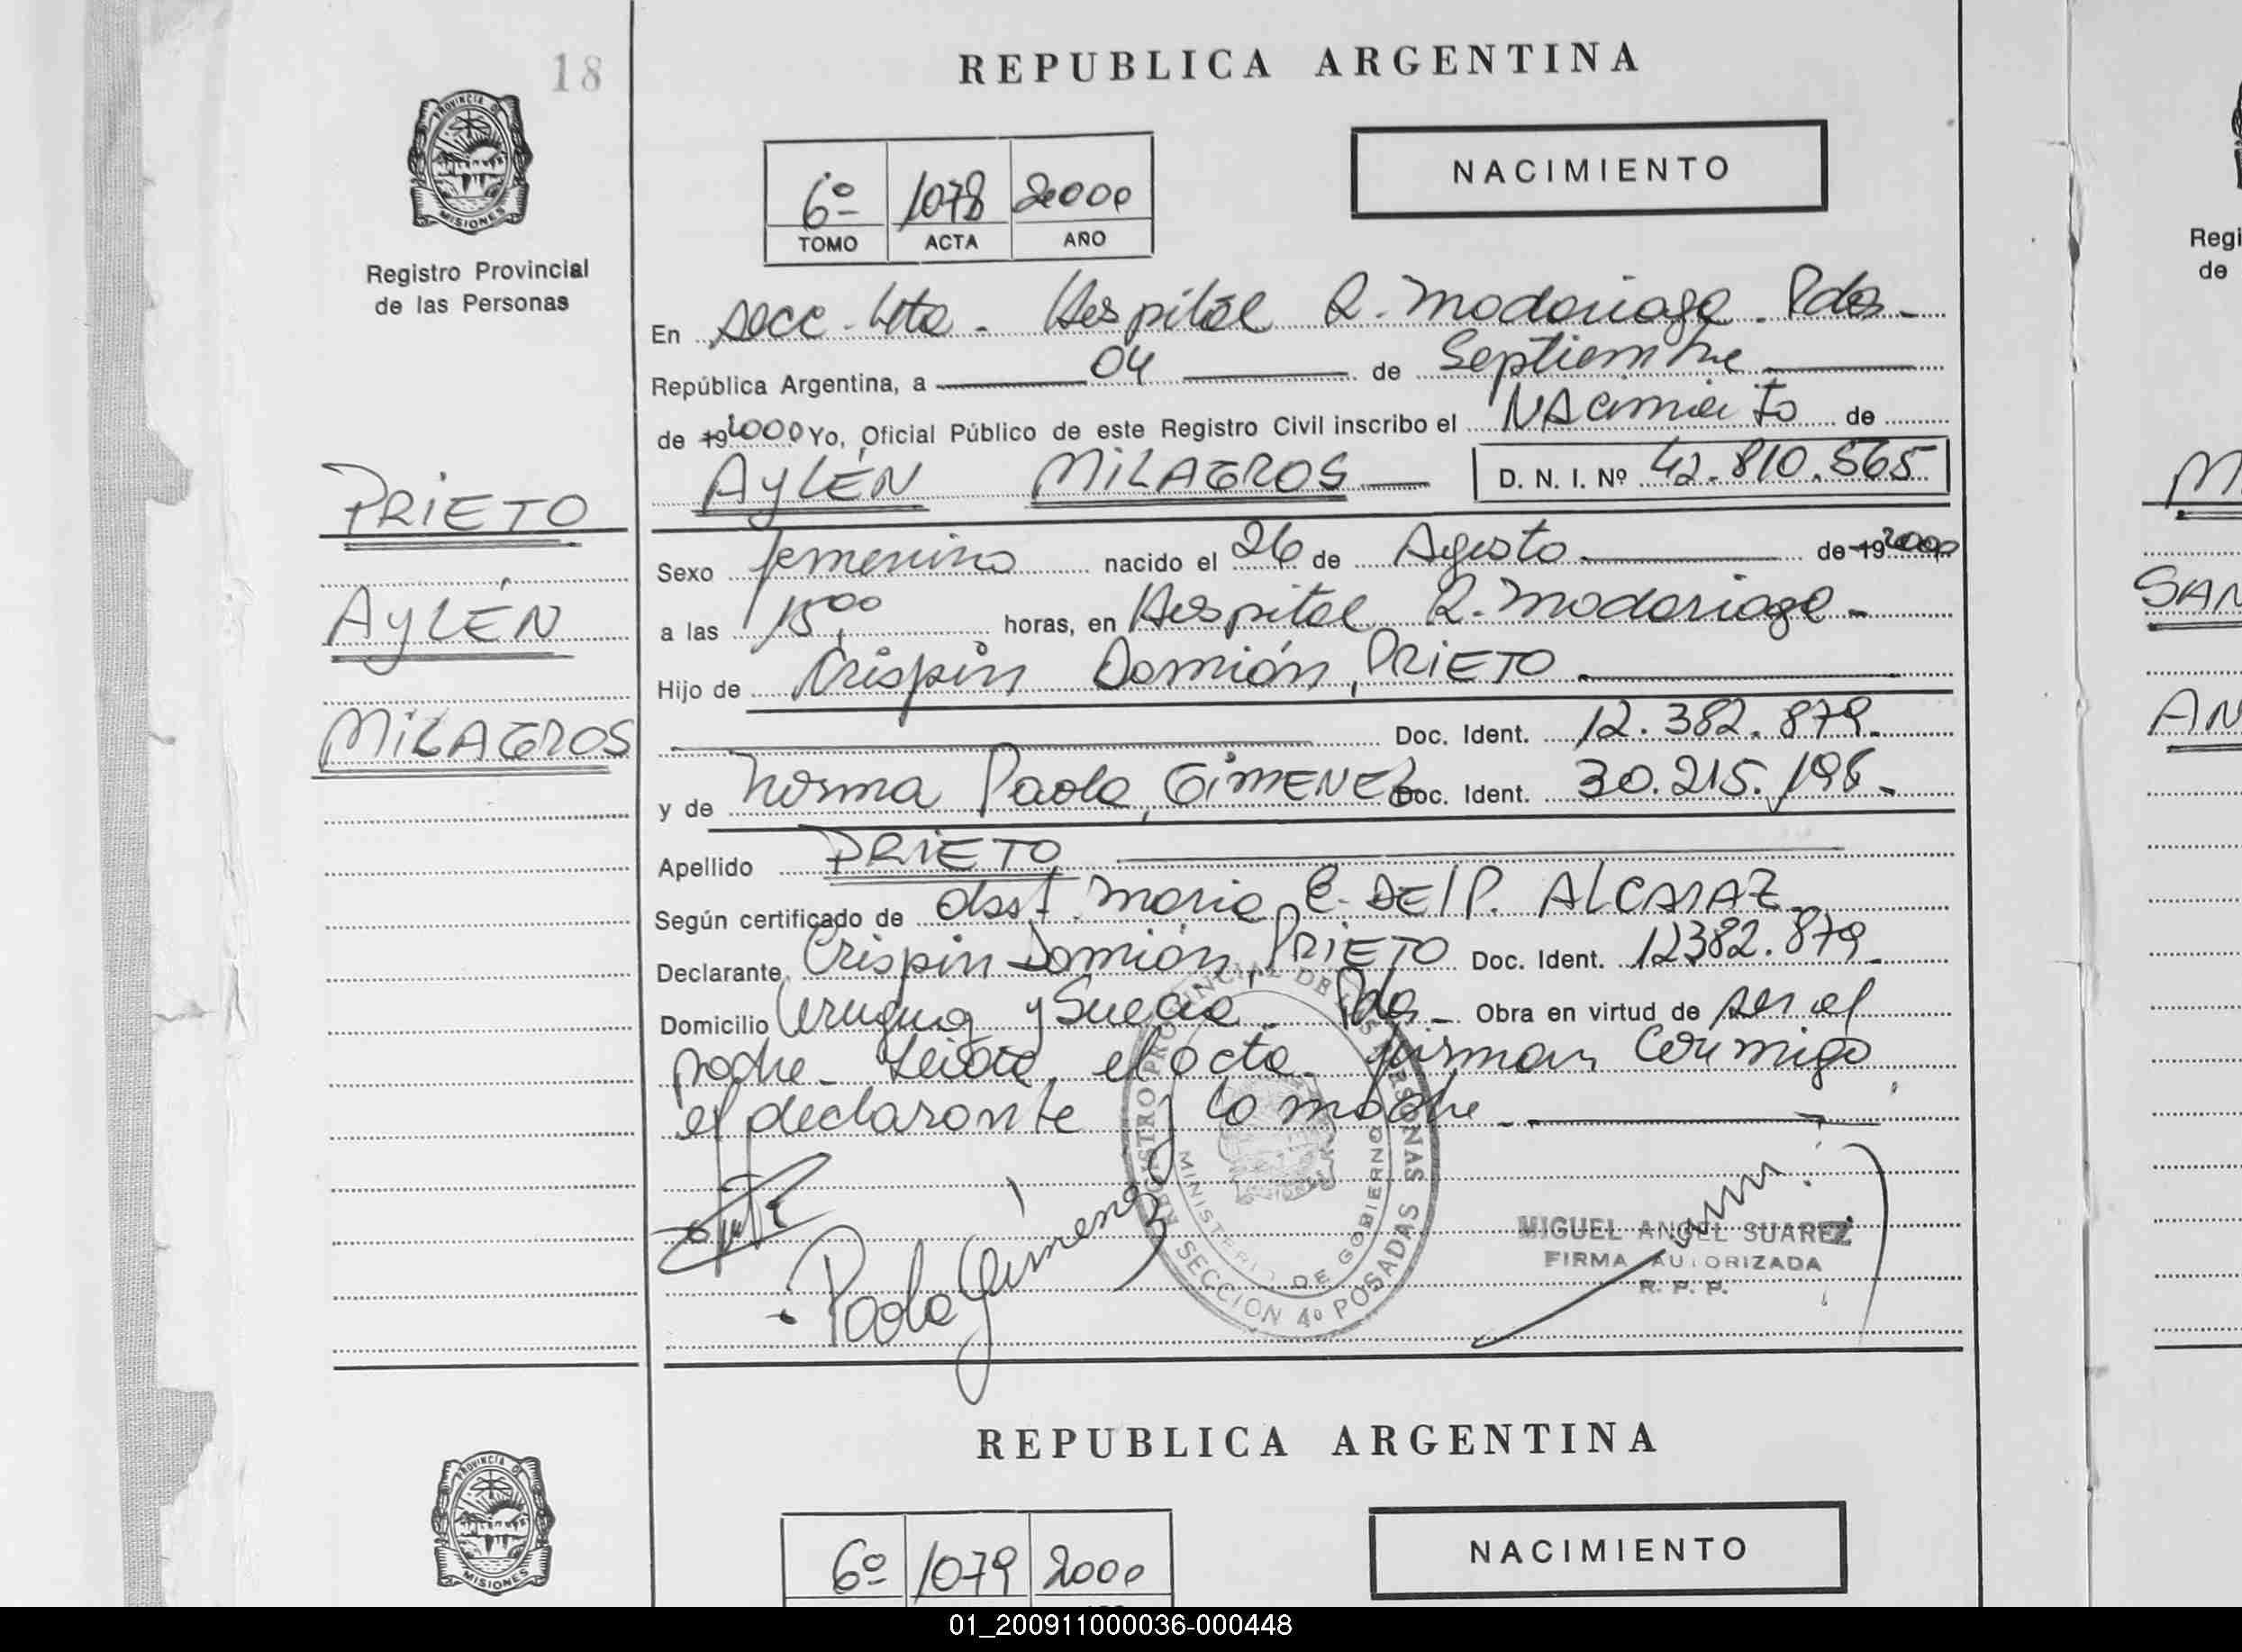 18
REPUBLICA ARGENTINA
PROVINCIA DE
MISIONES
Registro Provincial
de las Personas
6º 1078 2000
TOMO ACTA AÑO
NACIMIENTO
En Secc. 4ta. Hospital R. Madariaga. Pdas.
República Argentina, a 04 de Septiembre
de 19 2000 Yo, Oficial Público de este Registro Civil inscribo el NAcimieito de
AYLÉN MILAGROS D. N. I. Nº 42.810.565
PRIETO
AYLÉN
MILAGROS
Sexo femenino nacido el 26 de Agosto de 19 2000
a las 15,00 horas, en Hospital R. Madariaga
Hijo de Crispín Damián, PRIETO
Doc. Ident. 12.382.879.
y de Norma Paola, GIMENEZ Doc. Ident. 30.215.196.
Apellido PRIETO
Según certificado de Obst. Maria E. DEL P. ALCARAZ
Declarante Crispín Damián, PRIETO Doc. Ident. 12382.879
Domicilio Uruguay y Suecia. Pdas. Obra en virtud de ser el
padre. Leida el acta. firman conmigo
el declarante y la madre
Paola Gimenez
REGISTRO PROVINCIAL DE LAS PERSONAS
MINISTERIO DE GOBIERNO
SECCION 4º POSADAS
MIGUEL ANGEL SUAREZ
FIRMA AUTORIZADA
R. P. P.
REPUBLICA ARGENTINA
PROVINCIA DE
MISIONES
6º 1079 2000
NACIMIENTO
Regi
de
M
SAN
AN
01_200911000036-000448